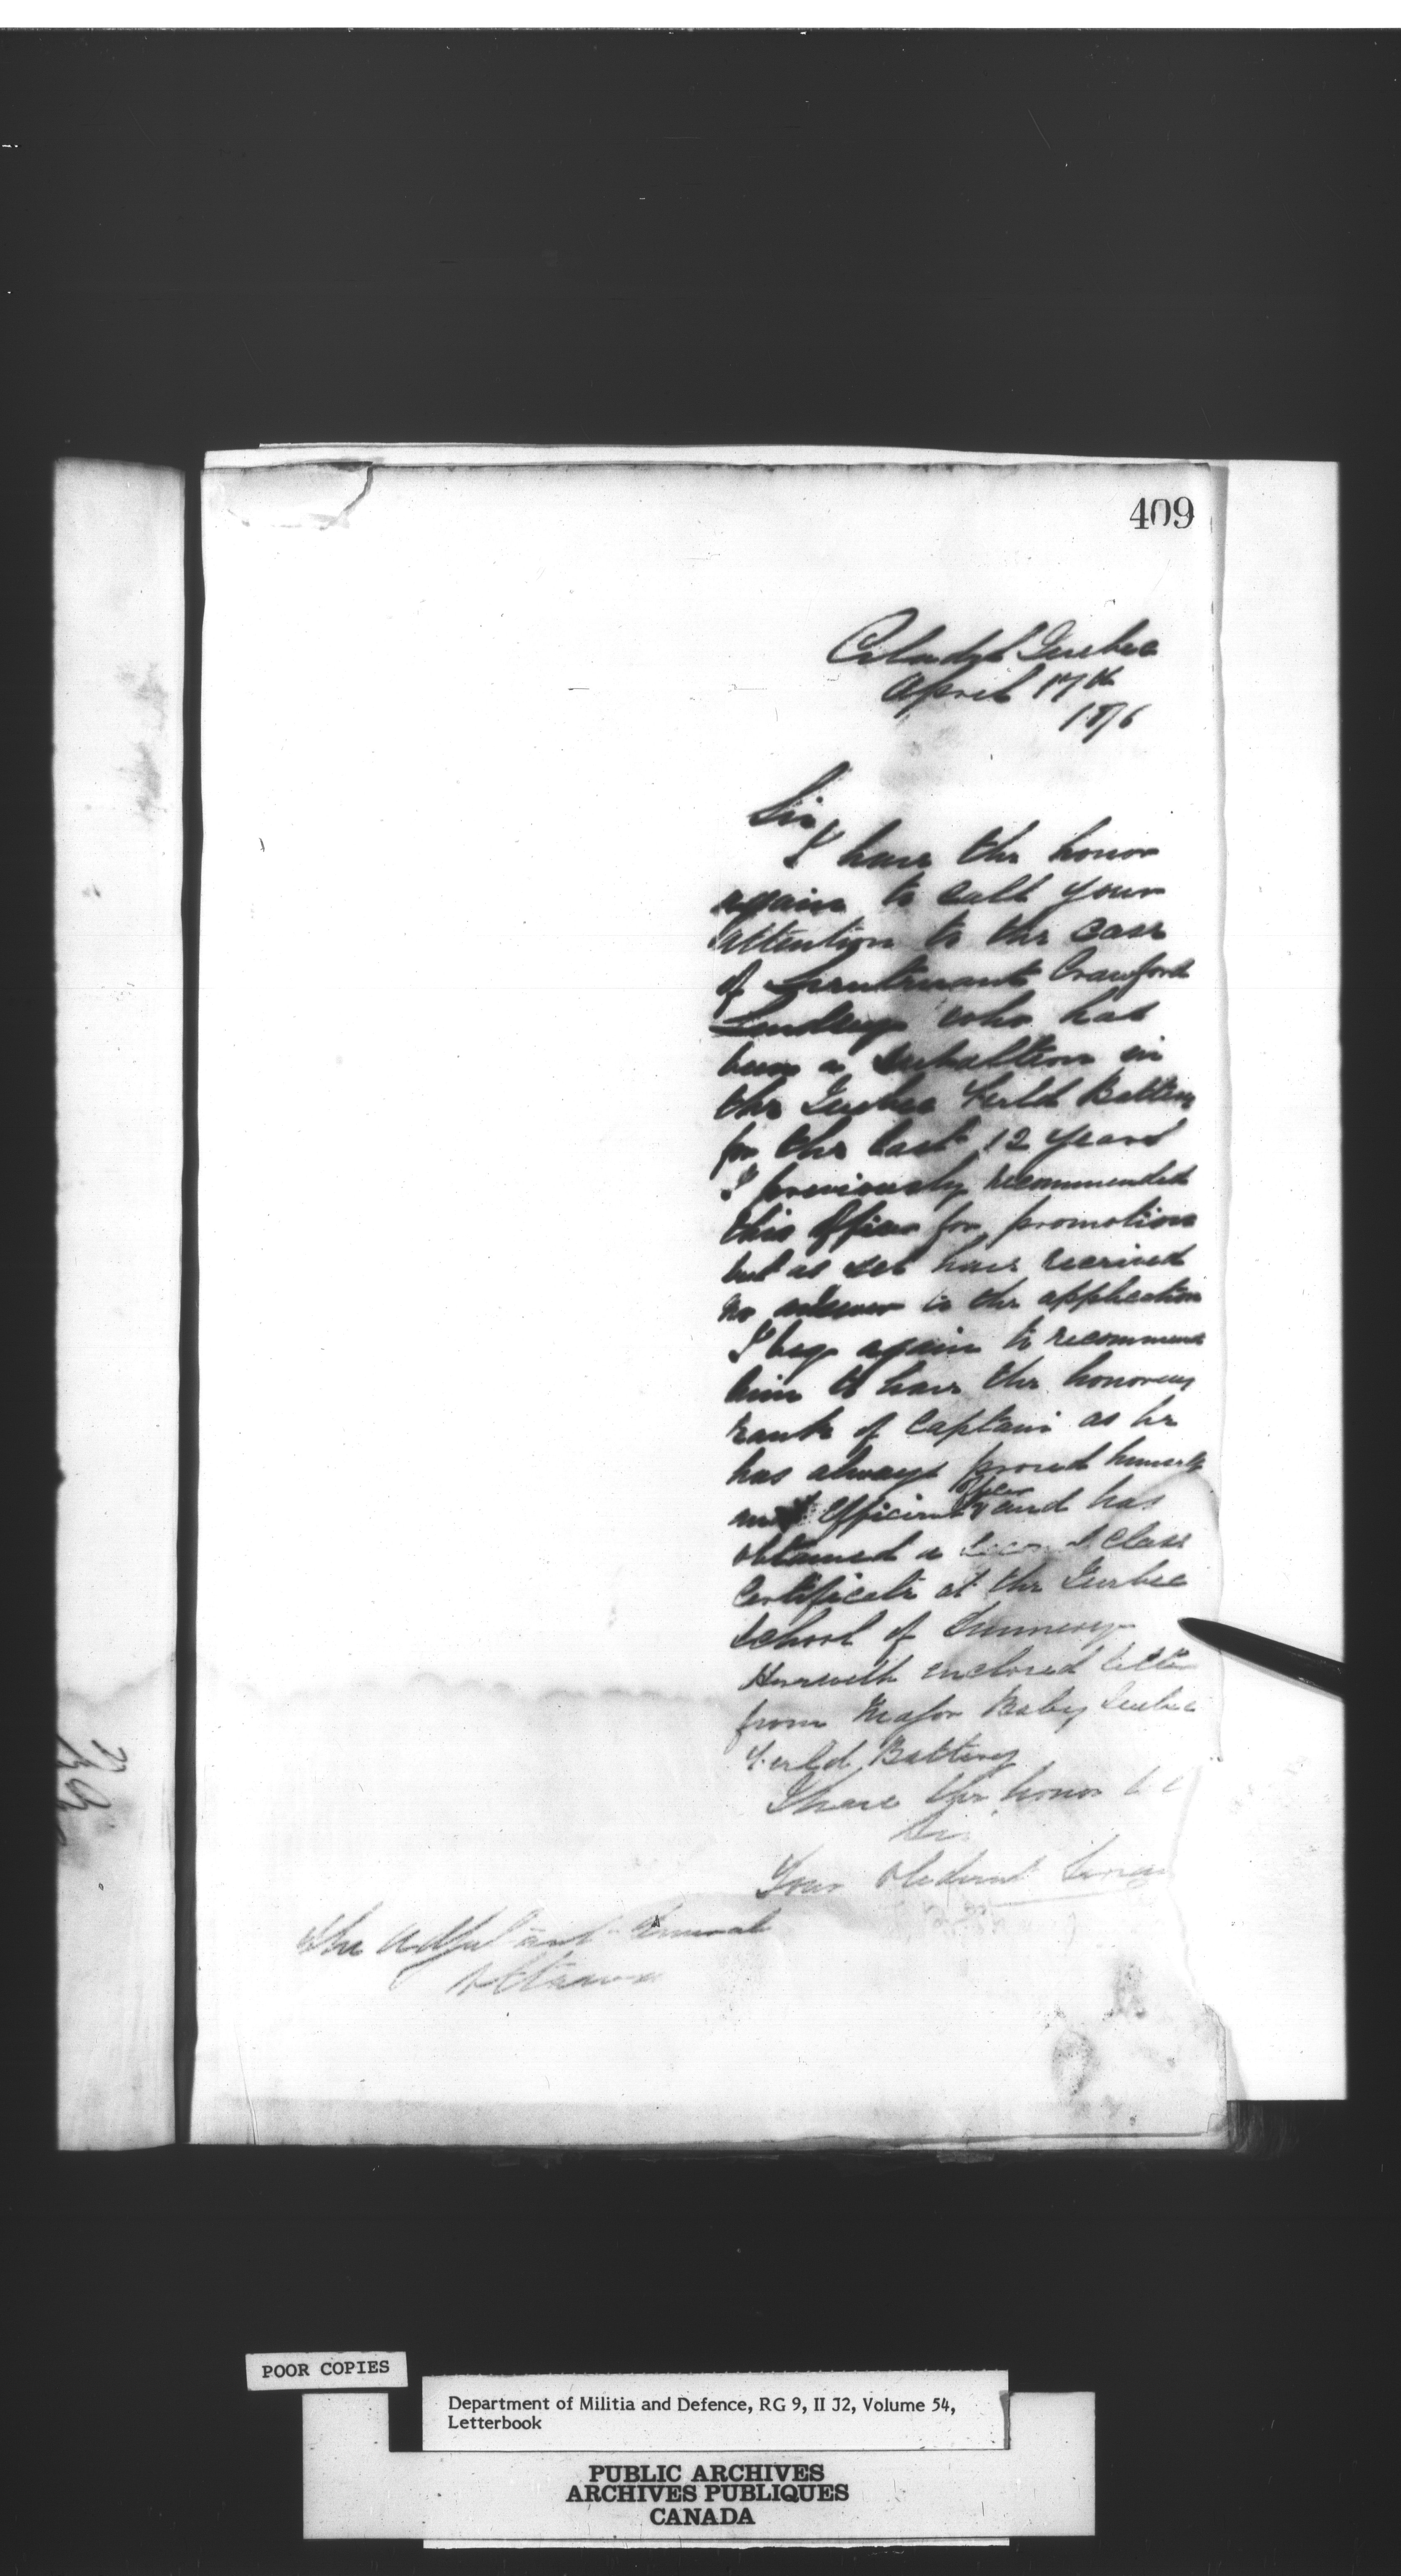 409
Citadel Quebec
April 17th
1876
Sir
I have the honor
again to call your
attention to the case
of Lieutenant Crawford
Lindsay who has
been a subaltern in
the Quebec Field Battery
for the last 12 years
I previously recommended
this officer for promotion
but as yet have received
no answer to the application
I beg again to recommend
him to have the honorary
rank of Captain as he
has always proved himself
most efficient officer and has
obtained a second class
Certificate at the Quebec
School of Gunnery
Herewith enclosed letter
from Major Baby Quebec
Field Battery
I have the honor
Sir
Your Obedient Servant
The Adjutant General
Ottawa
POOR COPIES
Department of Militia and Defence, RG 9, II J2, Volume 54,
Letterbook
PUBLIC ARCHIVES
ARCHIVES PUBLIQUES
CANADA